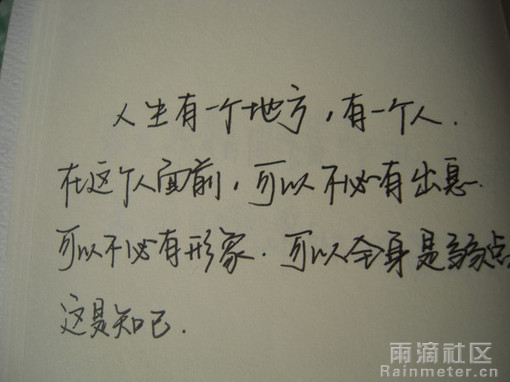 人生有一个地方，有一个人.
在这个人面前，可以不必有出息.
可以不必有形象.可以全身是弱点
这是知己.
雨滴社区
Rainmeter.cn